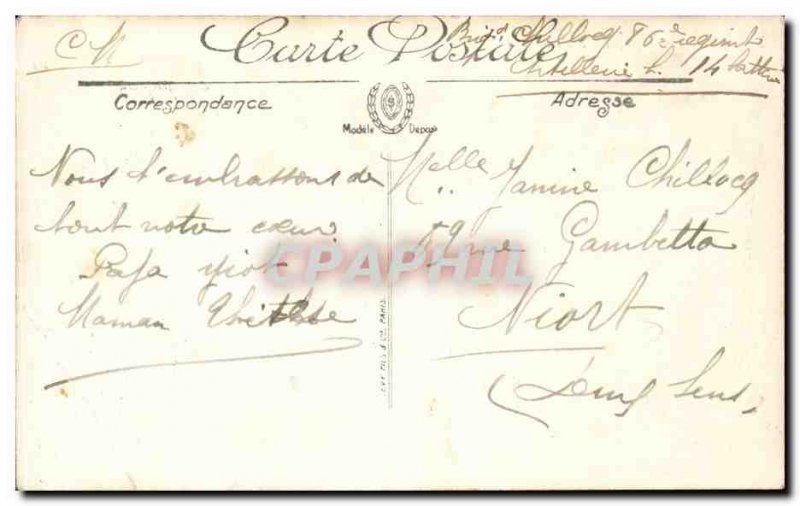 C M
Carte Postale
Brig. Chillocq 86e régiment
Artillerie L. 14 batterie
Correspondance
Adresse
Modèle Déposé
Nous t'embrassons de
tout notre cœur
Papa
Maman
Melle Janine Chillocq
rue Gambetta
Niort
Deux Sèvres
CPAPHIL